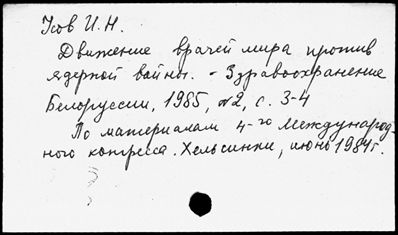 Усов И.Н.
Движение врачей мира против
ядерной войны. - Здравоохранение
Белоруссии, 1985, №2, с. 3-4
По материалам 4-го Международ-
ного конгресса. Хельсинки, июнь 1984г.